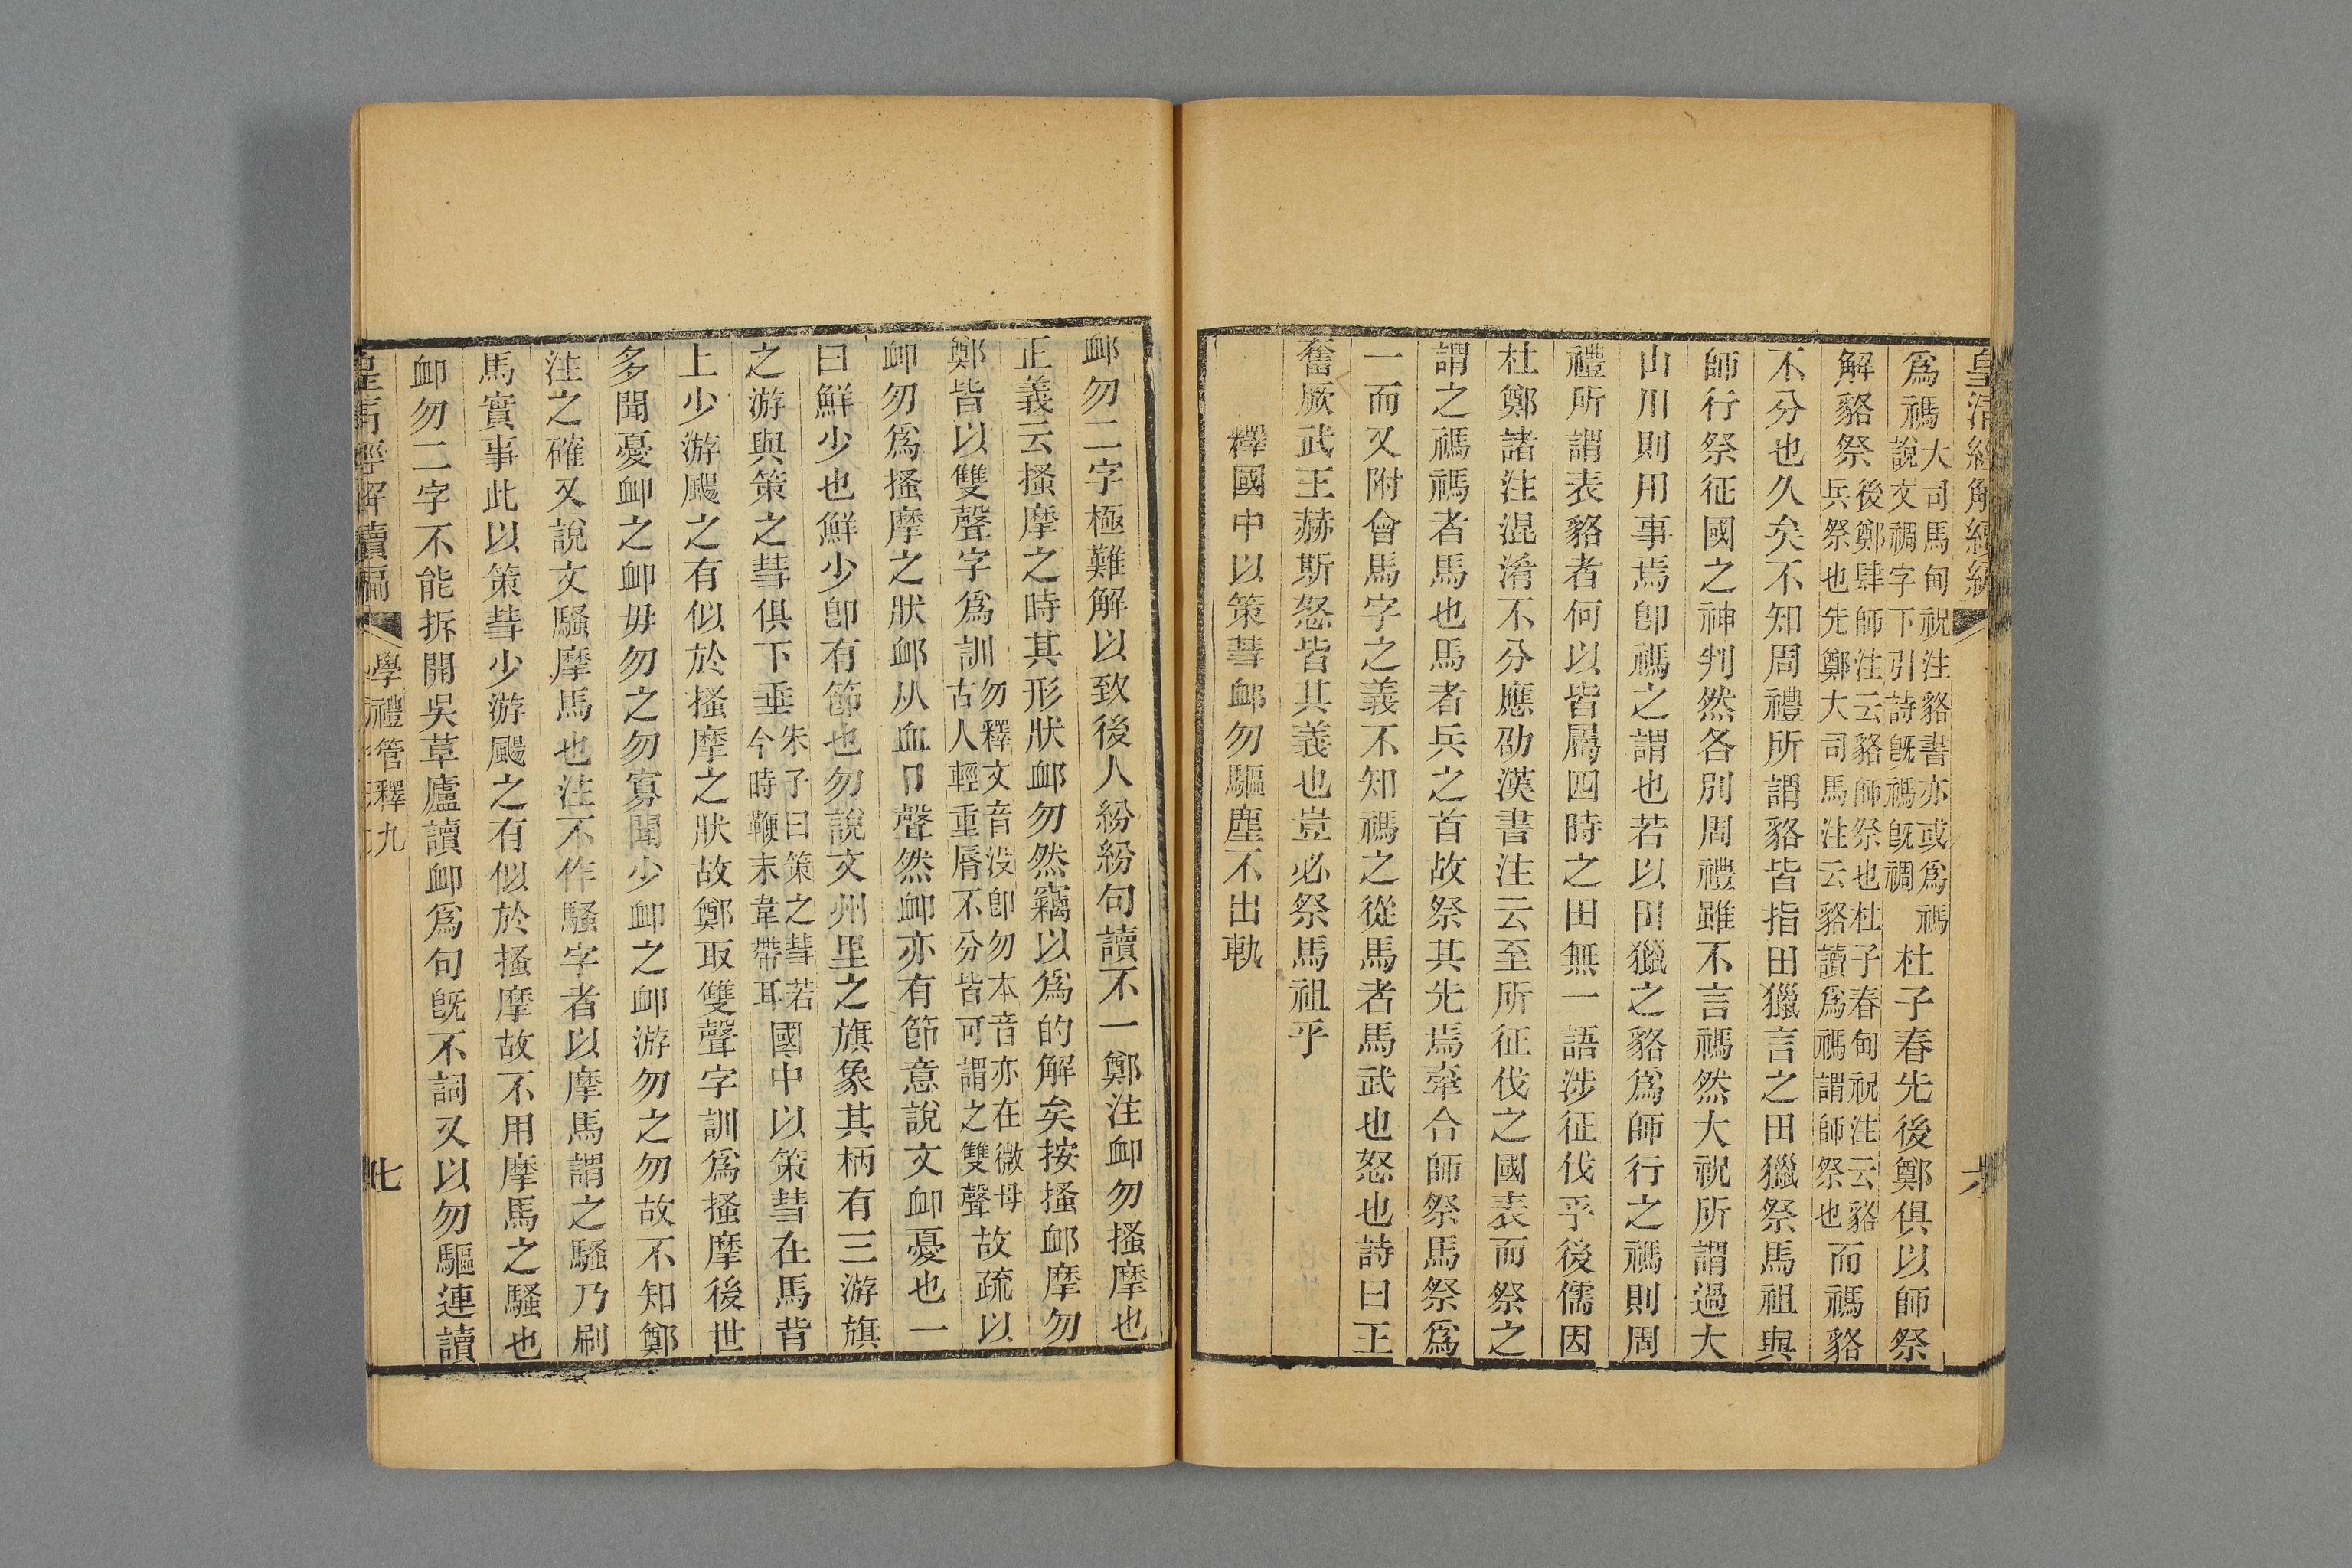 皇清經解續編
六
爲禡大司馬甸祝注貉書亦或爲禡說文禂字下引詩旣禡旣禂杜子春先後鄭俱以師祭
解貉祭後鄭肆師注云貉師祭也杜子春甸祝注云貉兵祭也先鄭大司馬注云貉讀爲禡謂師祭也而禡貉
不分也久矣不知周禮所謂貉皆指田獵言之田獵祭馬祖與
師行祭征國之神判然各別周禮雖不言禡然大祝所謂過大
山川則用事焉卽禡之謂也若以田獵之貉爲師行之禡則周
禮所謂表貉者何以皆屬四時之田無一語涉征伐乎後儒因
杜鄭諸注混淆不分應劭漢書注云至所征伐之國表而祭之
謂之禡禡者馬也馬者兵之首故祭其先焉牽合師祭馬祭爲
一而又附會馬字之義不知禡之從馬者馬武也怒也詩曰王
奮厥武王赫斯怒皆其義也豈必祭馬祖乎
釋國中以策彗卹勿驅塵不出軌
卹勿二字極難解以致後人紛紛句讀不一鄭注卹勿搔摩也
正義云搔摩之時其形狀卹勿然竊以爲的解矣按搔卹摩勿
鄭皆以雙聲字爲訓勿釋文音没卽勿本音亦在微母古人輕重脣不分皆可謂之雙聲故疏以
卹勿爲搔摩之狀卹从血卩聲然卹亦有節意說文卹憂也一
曰鮮少也鮮少卽有節也勿說文州里之旗象其柄有三游旗
之游與策之彗俱下垂朱子曰策之彗若今時鞭末韋帶耳國中以策彗在馬背
上少游颺之有似於搔摩之狀故鄭取雙聲字訓爲搔摩後世
多聞憂卹之卹毋勿之勿寡聞少卹之卹游勿之勿故不知鄭
注之確又說文騷摩馬也注不作騷字者以摩馬謂之騷乃刷
馬實事此以策彗少游颺之有似於搔摩故不用摩馬之騷也
卹勿二字不能拆開吳草廬讀卹爲句旣不詞又以勿驅連讀
皇清經解續編
學禮管釋九
七